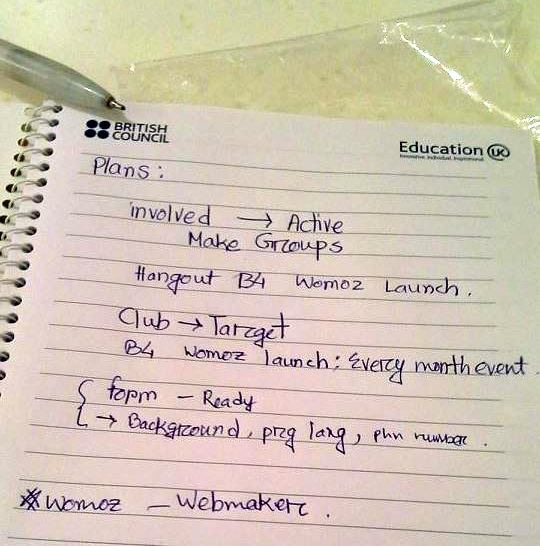 BRITISH
COUNCIL
Education UK
Innovative. Individual. Inspirational.
Plans:
involved → Active
Make Groups
Hangout B4 Womoz Launch.
Club → Target
B4 womoz launch: Every month event.
{ form – Ready
→ Background, prg lang, phn number.
* Womoz – Webmaker.